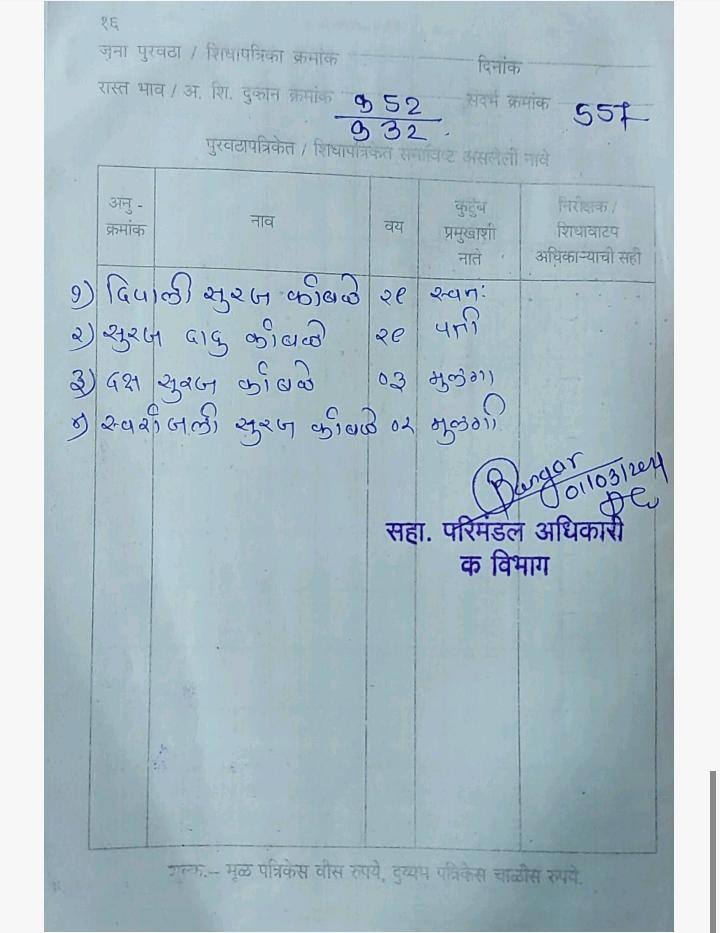 १६
जुना पुरवठा / शिधापत्रिका क्रमांक दिनांक
रास्त भाव / अ. शि. दुकान क्रमांक क 52 / क 32 संदर्भ क्रमांक 557
पुरवठापत्रिकेत / शिधापत्रिकेत समाविष्ट असलेली नावे
अनु - क्रमांक नाव वय कुटुंब प्रमुखाशी नाते निरीक्षक / शिधावाटप अधिकाऱ्याची सही
१) दिपाली सुरज कांबळे २९ स्वतः
२) सुरज दादु कांबळे २९ पती
३) दक्ष सुरज कांबळे ०३ मुलगा
४) स्वरांजली सुरज कांबळे ०२ मुलगी
सहा. परिमंडल अधिकारी
क विभाग
शुल्क.– मूळ पत्रिकेस वीस रुपये, दुय्यम पत्रिकेस चाळीस रुपये.